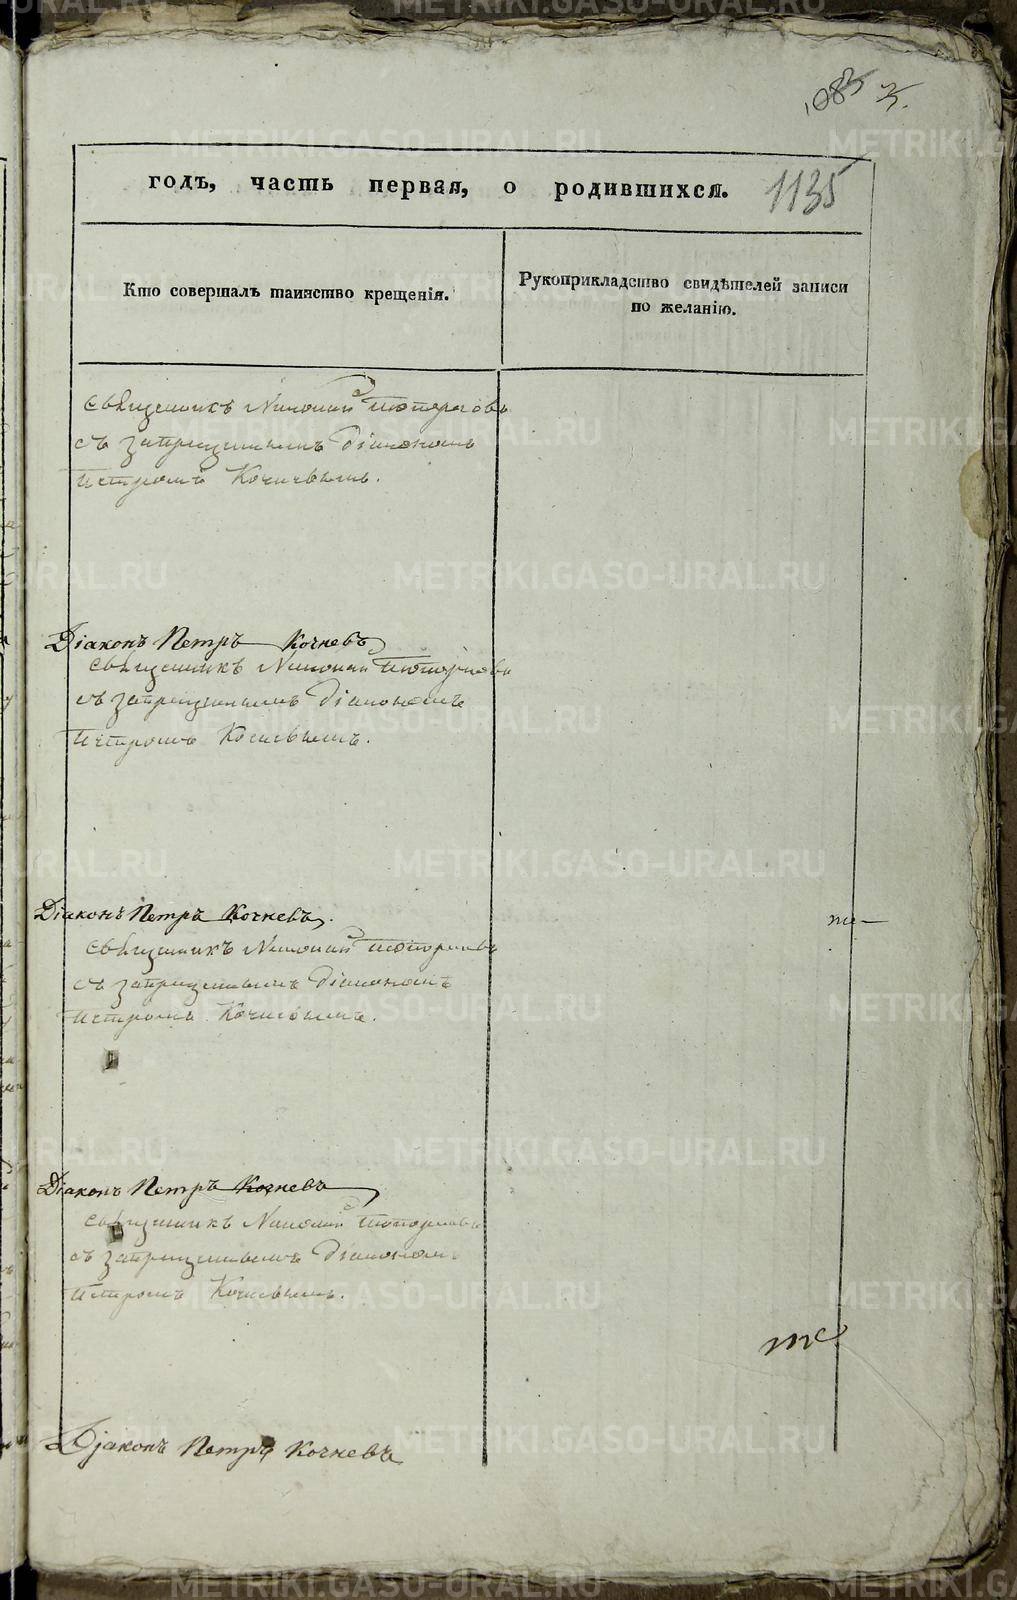 1135
годъ, часть первая, о родившихся.
Кто совершалъ таинство крещенія.
Рукоприкладство свидѣтелей записи
по желанію.
священникъ Николай Топорковъ
съ запрещеннымъ Діакономъ
Петромъ Кочневымъ.
Діаконъ Петръ Кочневъ
священникъ Николай Топорковъ
съ запрещеннымъ Діакономъ
Петромъ Кочневымъ.
Діаконъ Петръ Кочневъ.
священникъ Николай Топорковъ
съ запрещеннымъ Діакономъ
Петромъ Кочневымъ.
Діаконъ Петръ Кочневъ
священникъ Николай Топорковъ
съ запрещеннымъ Діакономъ
Петромъ Кочневымъ.
Діаконъ Петръ Кочневъ
METRIKI.GASO-URAL.RU